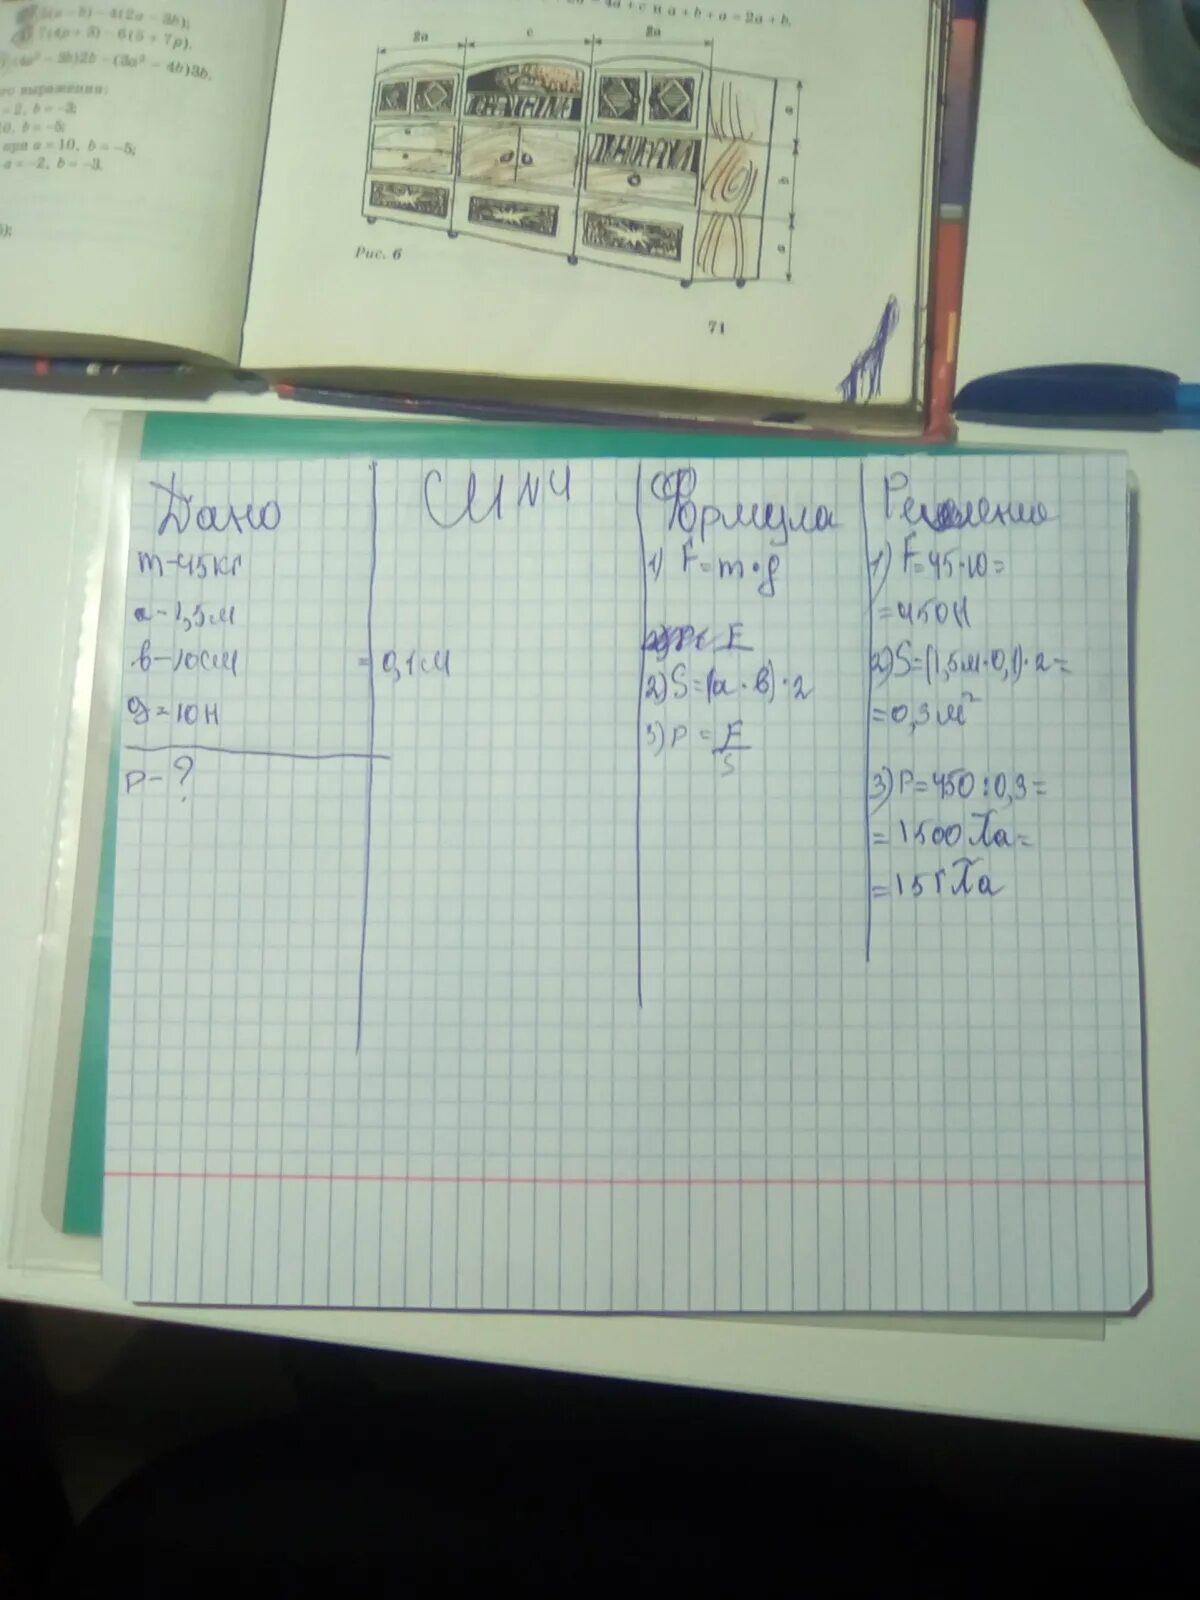 − 4a + c и a + b + a = 2a + b.
− b) − 4(2a − 3b);
7(4p + 3) − 6(5 + 7p).
− 3b)2b − (3a² − 4b)3b.
выражения:
= 2, b = −3;
b = −5;
при a = 10, b = −5;
a = −2, b = −3.
2a c 2a
a
b
a
Рис. 6
71
Дано
m − 45кг
a − 1,5м
в − 10см = 0,1м
g = 10Н
P − ?
СИ №4
Формула
1) F = m · g
2) S = (a · в) · 2
3) P = F/S
Решение
1) F = 45 · 10 =
= 450Н
2) S = (1,5м · 0,1) · 2 =
= 0,3м²
3) P = 450 : 0,3 =
= 1500 Па =
= 15 гПа